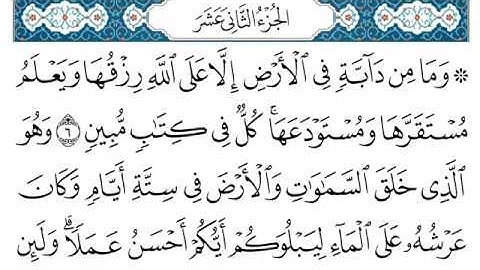 الجزء الثاني عشر
۞ وَمَا مِن دَآبَّةٖ فِي ٱلۡأَرۡضِ إِلَّا عَلَى ٱللَّهِ رِزۡقُهَا وَيَعۡلَمُ
مُسۡتَقَرَّهَا وَمُسۡتَوۡدَعَهَاۚ كُلّٞ فِي كِتَٰبٖ مُّبِينٖ ٦ وَهُوَ
ٱلَّذِي خَلَقَ ٱلسَّمَٰوَٰتِ وَٱلۡأَرۡضَ فِي سِتَّةِ أَيَّامٖ وَكَانَ
عَرۡشُهُۥ عَلَى ٱلۡمَآءِ لِيَبۡلُوَكُمۡ أَيُّكُمۡ أَحۡسَنُ عَمَلٗاۗ وَلَئِن